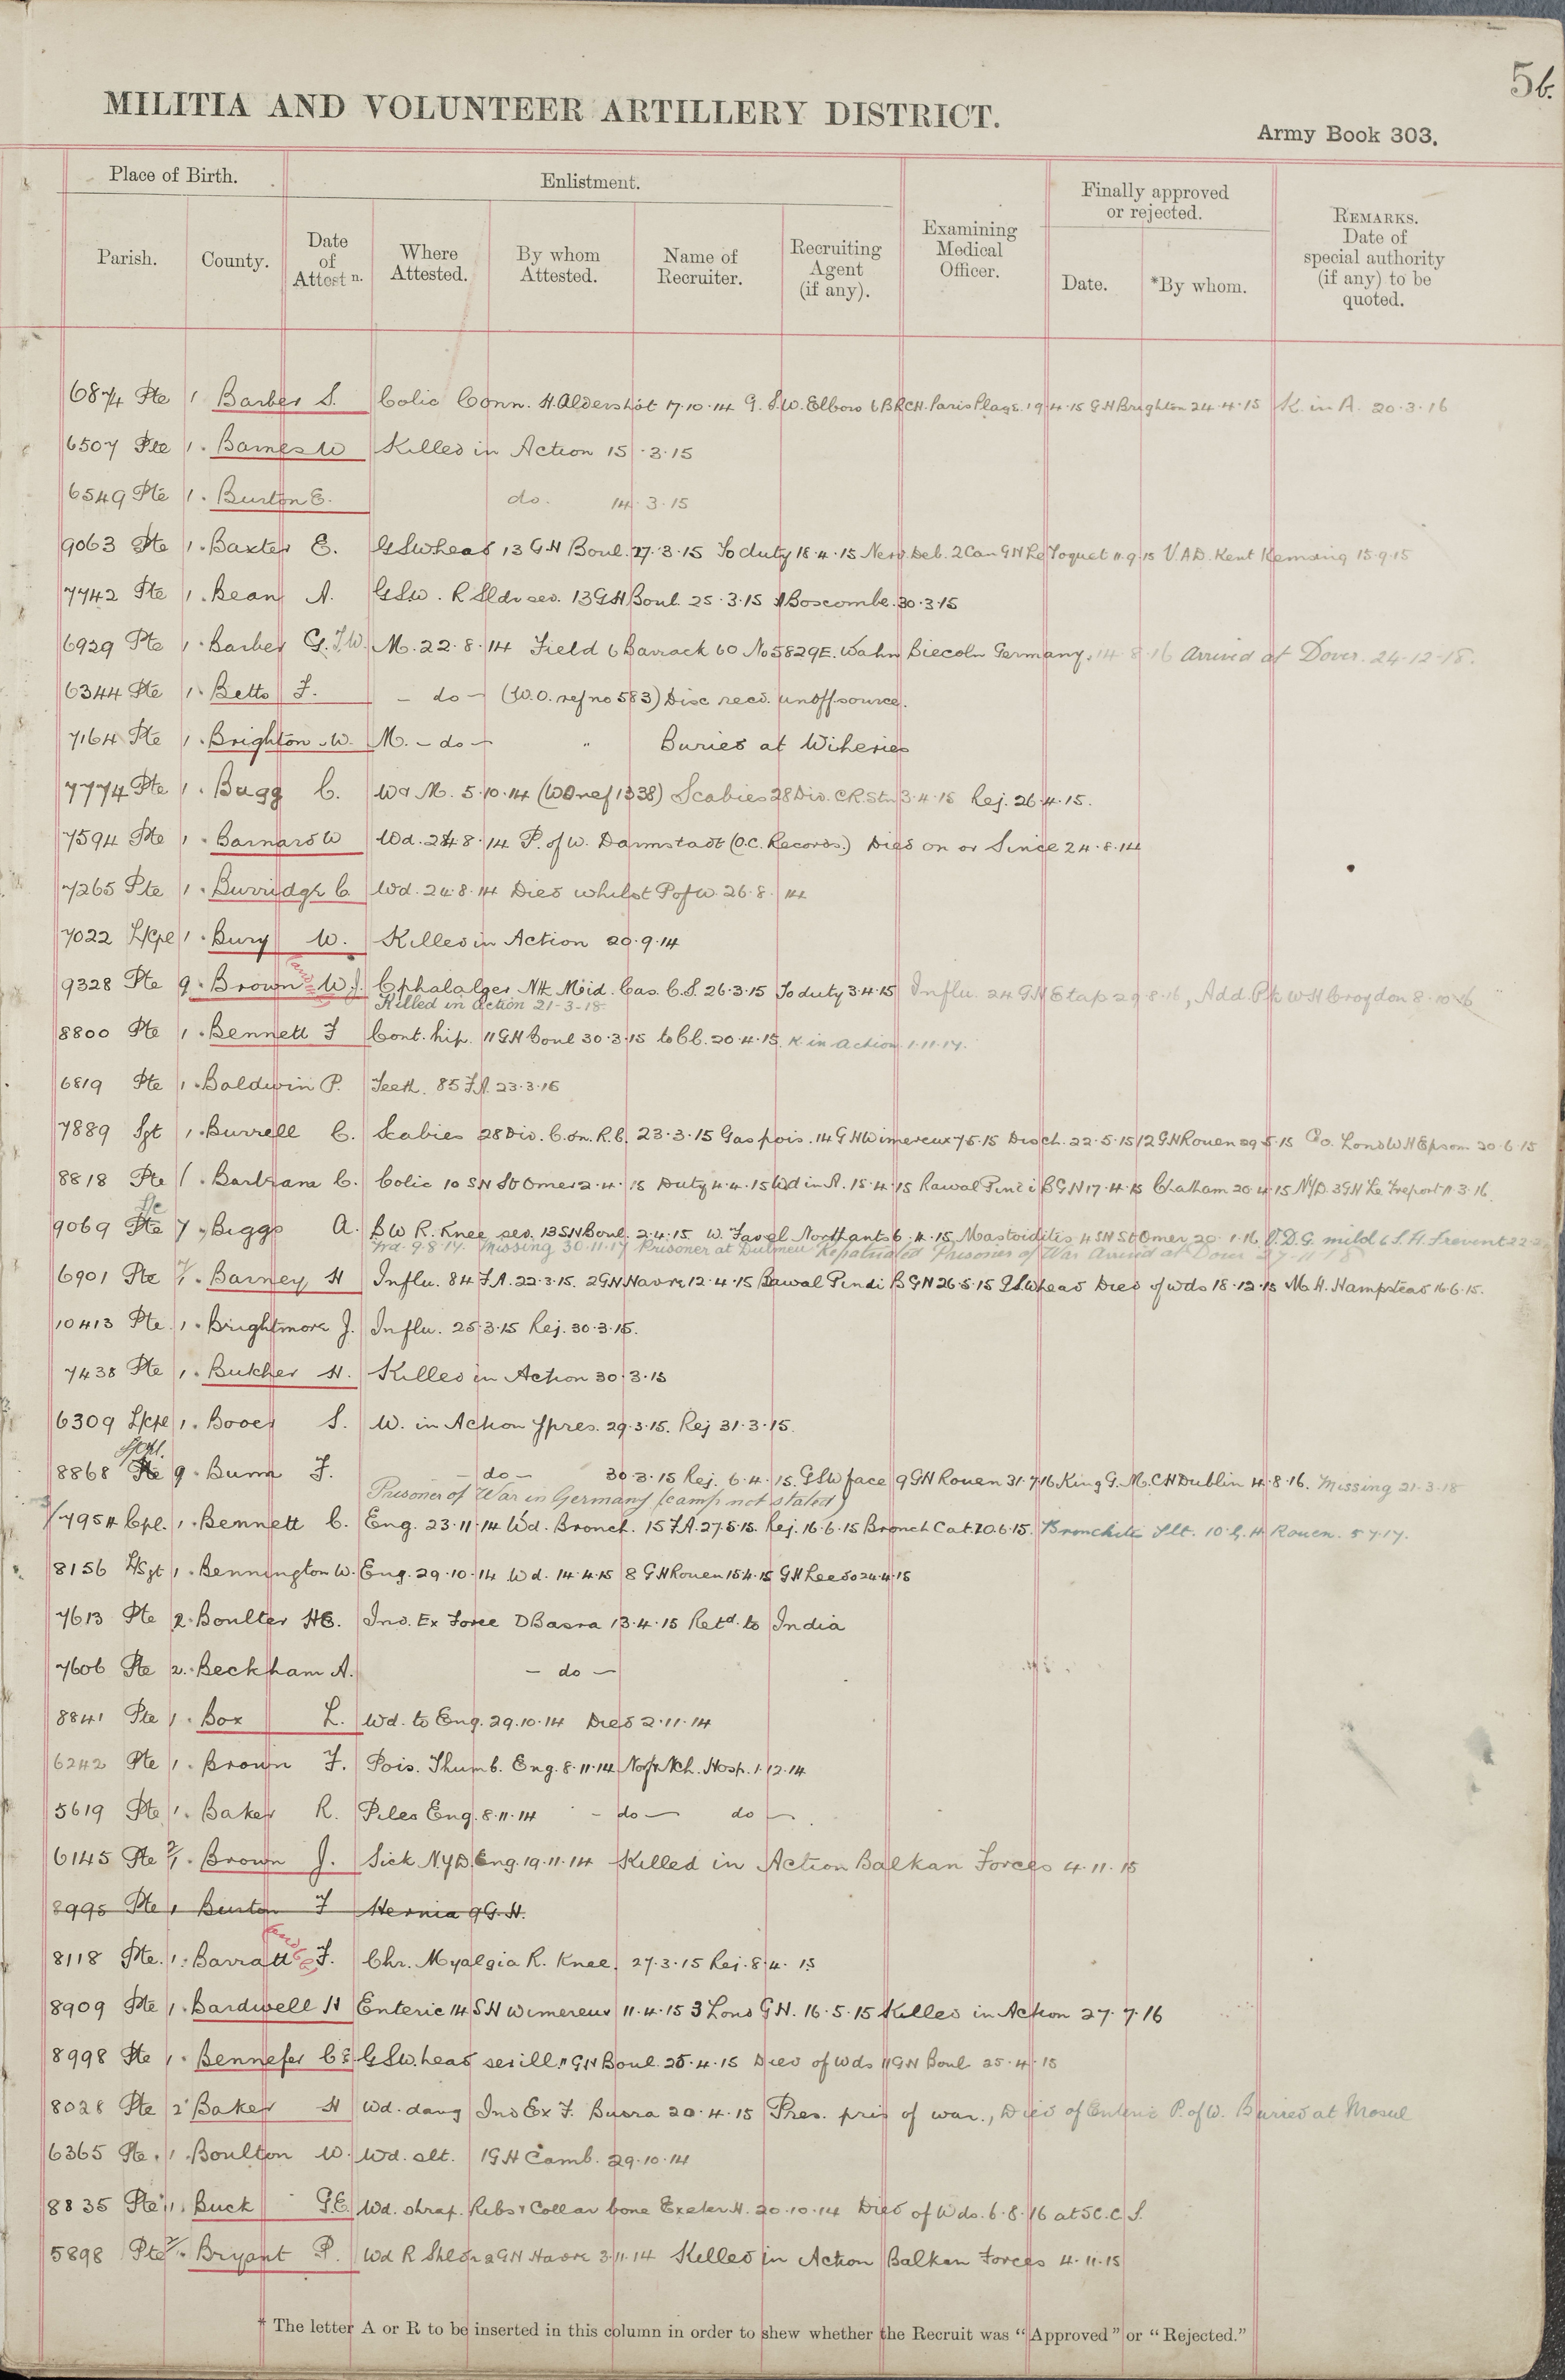 5b.
MILITIA AND VOLUNTEER ARTILLERY DISTRICT.
Army Book 303.
Place of Birth.
Enlistment.
Finally approved
or rejected.
Parish.
County.
Date
of
Attestn.
Where
Attested.
By whom
Attested.
Name of
Recruiter.
Recruiting
Agent
(if any).
Examining
Medical
Officer.
Date.
*By whom.
REMARKS.
Date of
special authority
(if any) to be
quoted.
6874 Pte 1 Barber S. Colic Conn. H. Aldershot 17.10.14 G.S.W. Elbow 6 BRCH. Paris Plage. 19.4.15 GH Brighton 24.4.15 K. in A. 20.3.16
6507 Pte 1. Barnes W Killed in Action 15.3.15
6549 Pte 1. Burton E. do. 14.3.15
9063 Pte 1. Baxter E. GSW head 13 GH Boul. 27.3.15 To duty 18.4.15 Nerv. Deb. 2 Can GH Le Toquet 11.9.15 V.A.D. Kent Kemsing 15.9.15
7742 Pte 1. Bean A. GSW. R Sldr sev. 13 GH Boul. 25.3.15 Boscombe. 30.3.15
6929 Pte 1. Barber G. J.W. M. 22.8.14 Field 6 Barrack 60 No 5829E. Wahn Biecoln Germany, 14.8.16 Arrived at Dover. 24-12-18.
6344 Pte 1. Betts F. – do – (W.O. ref no 583) Disc recd. unoff source.
7164 Pte 1. Brighton W. M. – do – " Buried at Wiheries
7774 Pte 1. Bugg C. W & M. 5.10.14 (WO ref 1338) Scabies 28 Div. C.R.Stn 3.4.15 Rej. 26.4.15.
7594 Pte 1. Barnard W Wd. 24.8.14 P. of W. Darmstadt (O.C. Records.) Died on or Since 24.8.14
7265 Pte 1. Burridge C Wd. 24.8.14 Died whilst P of W. 26.8.14
7022 L/Cpl 1. Bury W. Killed in Action 20.9.14
9328 Pte 9. Brown W.J. Cphalalger NH. Meid. Cas. C.S. 26.3.15 To duty 3.4.15 Influ. 24 GH Etap 29.8.16, Add. Pk W H Croydon 8.10.16
Killed in action 21-3-18.
8800 Pte 1. Bennett F Cont. hip. 11 GH Boul 30.3.15 to CC. 20.4.15. K. in action 1.11.17.
6819 Pte 1. Baldwin P. Teeth. 85 F.A. 23.3.15
7889 Sgt 1. Burrell C. Scabies 28 Div. Con. R.C. 23.3.15 Gas pois. 14 GH Wimereux 7.5.15 Disch. 22.5.15 12 GH Rouen 29.5.15 Co. Lond W H Epsom 20.6.15
8818 Pte 1. Bartram C. Colic 10 SH St Omer 2.4.15 Duty 4.4.15 Wd in A. 15.4.15 Rawal Pindi B GH 17.4.15 Chatham 20.4.15 NYD. 3 GH Le Treport 11.3.16
L/c
9069 Pte 7. Biggs A. BW R. Knee sev. 13 SH Boul. 2.4.15. W. Favel Northants 6.4.15, Mastoiditis 4 SH St Omer, 20.1.16. V.D.G. mild 6 S.H. Trevent 22.2
Wd. 9.8.17. Missing 30.11.17 Prisoner at Dulmen Repatriated Prisoner of War Arrived at Dover 27-11-18
6901 Pte 2/1. Barney H Influ. 84 F.A. 22.3.15. 2 GH Havre 12.4.15 Rawal Pindi B GH 26.5.15 G.S.W head Died of wds 18.12.15 M.H. Hampstead 16.6.15.
10413 Pte 1. Brightmore J. Influ. 25.3.15 Rej. 30.3.15.
7438 Pte 1. Butcher H. Killed in Action 30.3.15
6309 L/Cpl 1. Booer S. W. in Action Ypres. 29.3.15. Rej 31.3.15.
8868 Pte 9. Bunn F. – do – 30.3.15 Rej. 6.4.15. GSW face 9 GH Rouen 31.7.16 King G. M. CH Dublin 4.8.16. Missing 21.3.18
Prisoner of War in Germany (camp not stated)
7954 Cpl. 1. Bennett C. Eng. 23.11.14 Wd. Bronch. 15 F.A. 27.5.15. Rej. 16.6.15 Bronch Cat. 20.6.15. Bronchitis Slt. 10. G.H. Rouen. 5.7.17.
8156 L/Sgt 1. Bennington W. Eng. 29.10.14 Wd. 14.4.15 8 GH Rouen 15.4.15 GH Leeds 24.4.15
7613 Pte 2. Boulter HE. Ind. Ex Force D Basra 13.4.15 Retd. to India
7606 Pte 2. Beckham A. – do –
8841 Pte 1. Box L. Wd. to Eng. 29.10.14 Died 2.11.14
6242 Pte 1. Brown F. Pois. Thumb. Eng. 8.11.14 Norf & Nch. Hosp. 1.12.14
5619 Pte 1. Baker R. Piles Eng. 8.11.14 – do – do –.
6145 Pte 2/1. Brown J. Sick NYD. Eng. 19.11.14 Killed in Action Balkan Forces 4.11.15
8995 Pte 1 Burton F Hernia 9 G.H.
8118 Pte. 1. Barratt F. Chr. Myalgia R. Knee. 27.3.15 Rej. 8.4.15
8909 Pte 1. Bardwell H Enteric 14 SH Wimereux 11.4.15 3 Lond GH. 16.5.15 Killed in Action 27.7.16
8998 Pte 1. Bennefer CE GSW. head ser ill. 11 GH Boul. 25.4.15 Died of Wds 11 GH Boul 25.4.15
8028 Pte 2 Baker H Wd. dang Ind Ex F. Busra 20.4.15 Pres. pris of war., Died of Enteric P. of W. Buried at Mosul
6365 Pte. 1. Boulton W. Wd. slt. 1 GH Camb. 29.10.14
8835 Pte 1. Buck G.E. Wd. shrap. Ribs & Collar bone Exeter H. 20.10.14 Died of Wds. 6.8.16 at 5 C.C.S.
5898 Pte 2/1. Bryant P. Wd R Shldr 2 GH Havre 3.11.14 Killed in Action Balkan Forces 4.11.15
* The letter A or R to be inserted in this column in order to shew whether the Recruit was "Approved" or "Rejected."